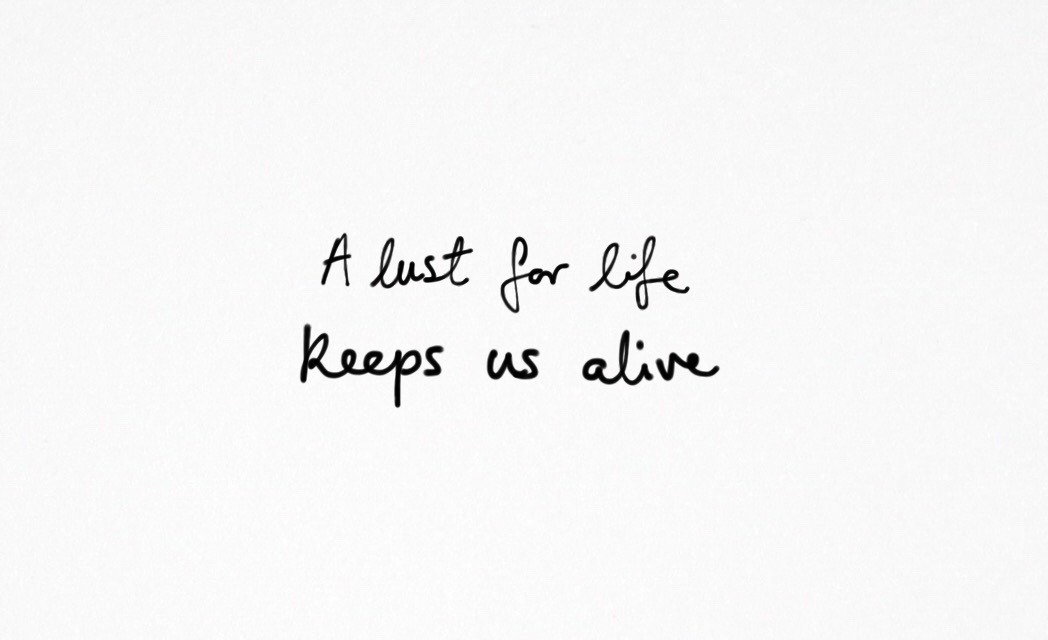 A lust for life
keeps us alive